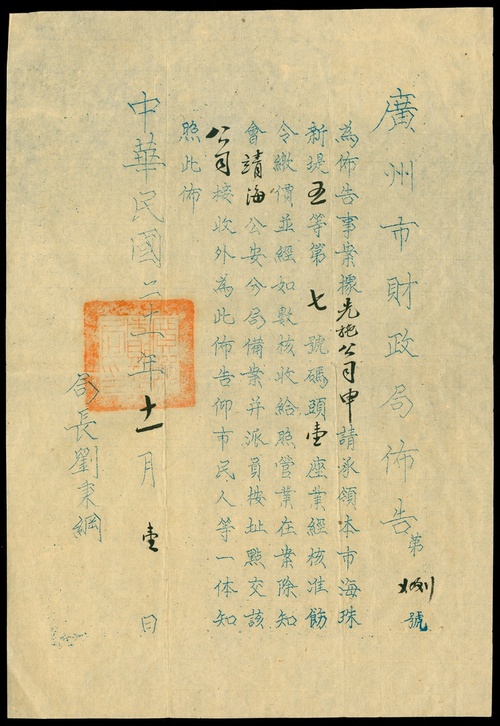 廣州市財政局佈告第 捌號
為佈告事案據先施公司申請承領本市海珠
新堤五等第七號碼頭壹座業經核准飭
令繳價並經如數核收給照管業在案除知
會靖海公安分局備案并派員按址點交該
公司接收外為此佈告仰市民人等一体知
照此佈
中華民國二十一年十一月壹日
局長劉秉綱